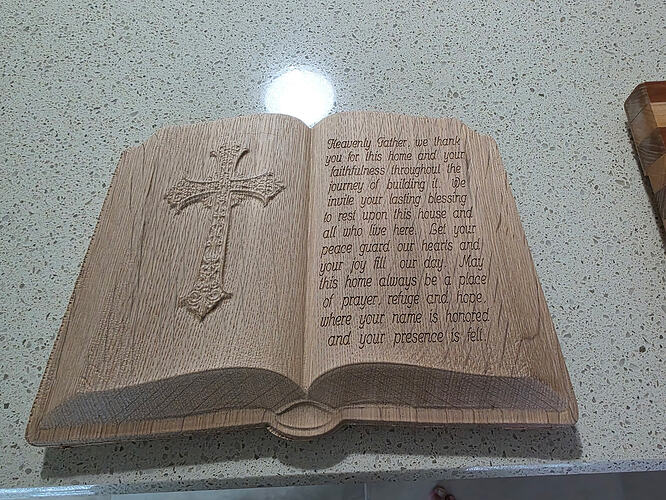 Heavenly Father, we thank
you for this home and your
faithfulness throughout the
journey of building it. We
invite your lasting blessing
to rest upon this house and
all who live here. Let your
peace guard our hearts and
your joy fill our day. May
this home always be a place
of prayer, refuge and hope,
where your name is honored
and your presence is felt.